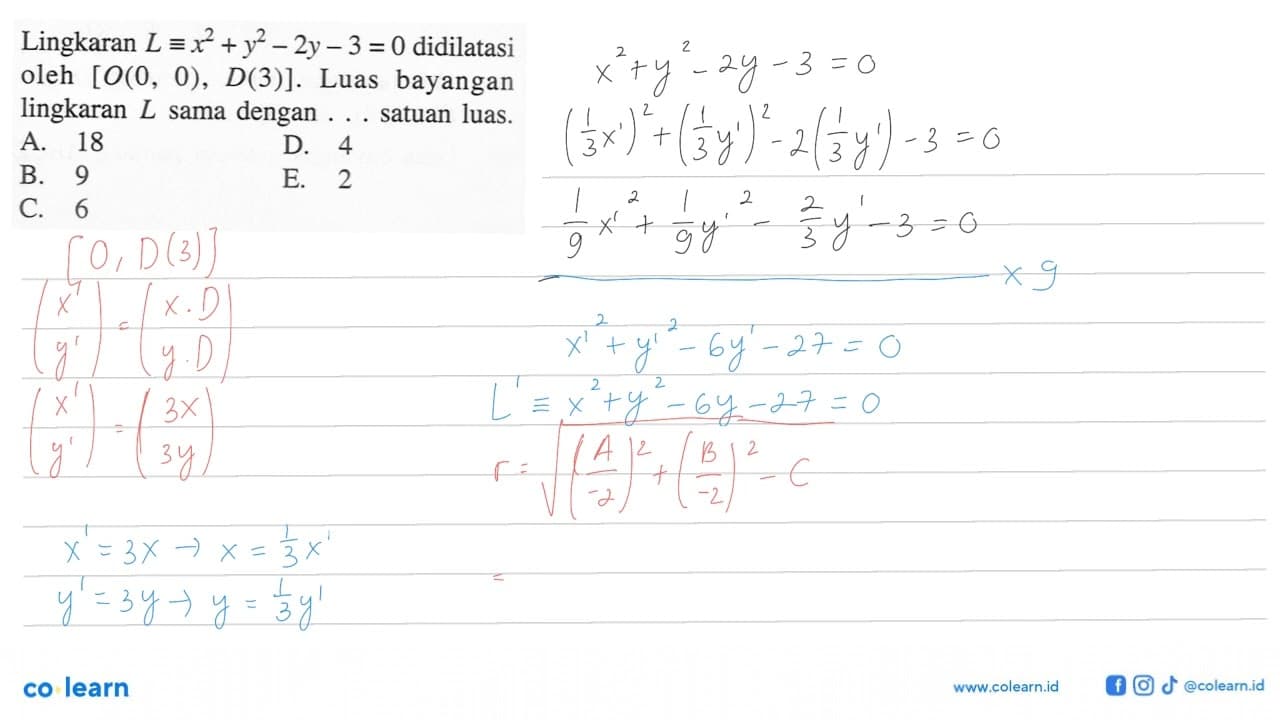 Lingkaran L ≡ x² + y² – 2y – 3 = 0 didilatasi
oleh [O(0, 0), D(3)]. Luas bayangan
lingkaran L sama dengan . . . satuan luas.
A. 18 D. 4
B. 9 E. 2
C. 6
[O, D(3)]
(x' y') = (x.D y.D)
(x' y') = (3x 3y)
x' = 3x → x = 1/3 x'
y' = 3y → y = 1/3 y'
x² + y² - 2y - 3 = 0
(1/3 x')² + (1/3 y')² - 2(1/3 y') - 3 = 0
1/9 x'² + 1/9 y'² - 2/3 y' - 3 = 0
x 9
x'² + y'² - 6y' - 27 = 0
L' ≡ x² + y² - 6y - 27 = 0
r = √((A/-2)² + (B/-2)² - C)
=
co learn
www.colearn.id
@colearn.id